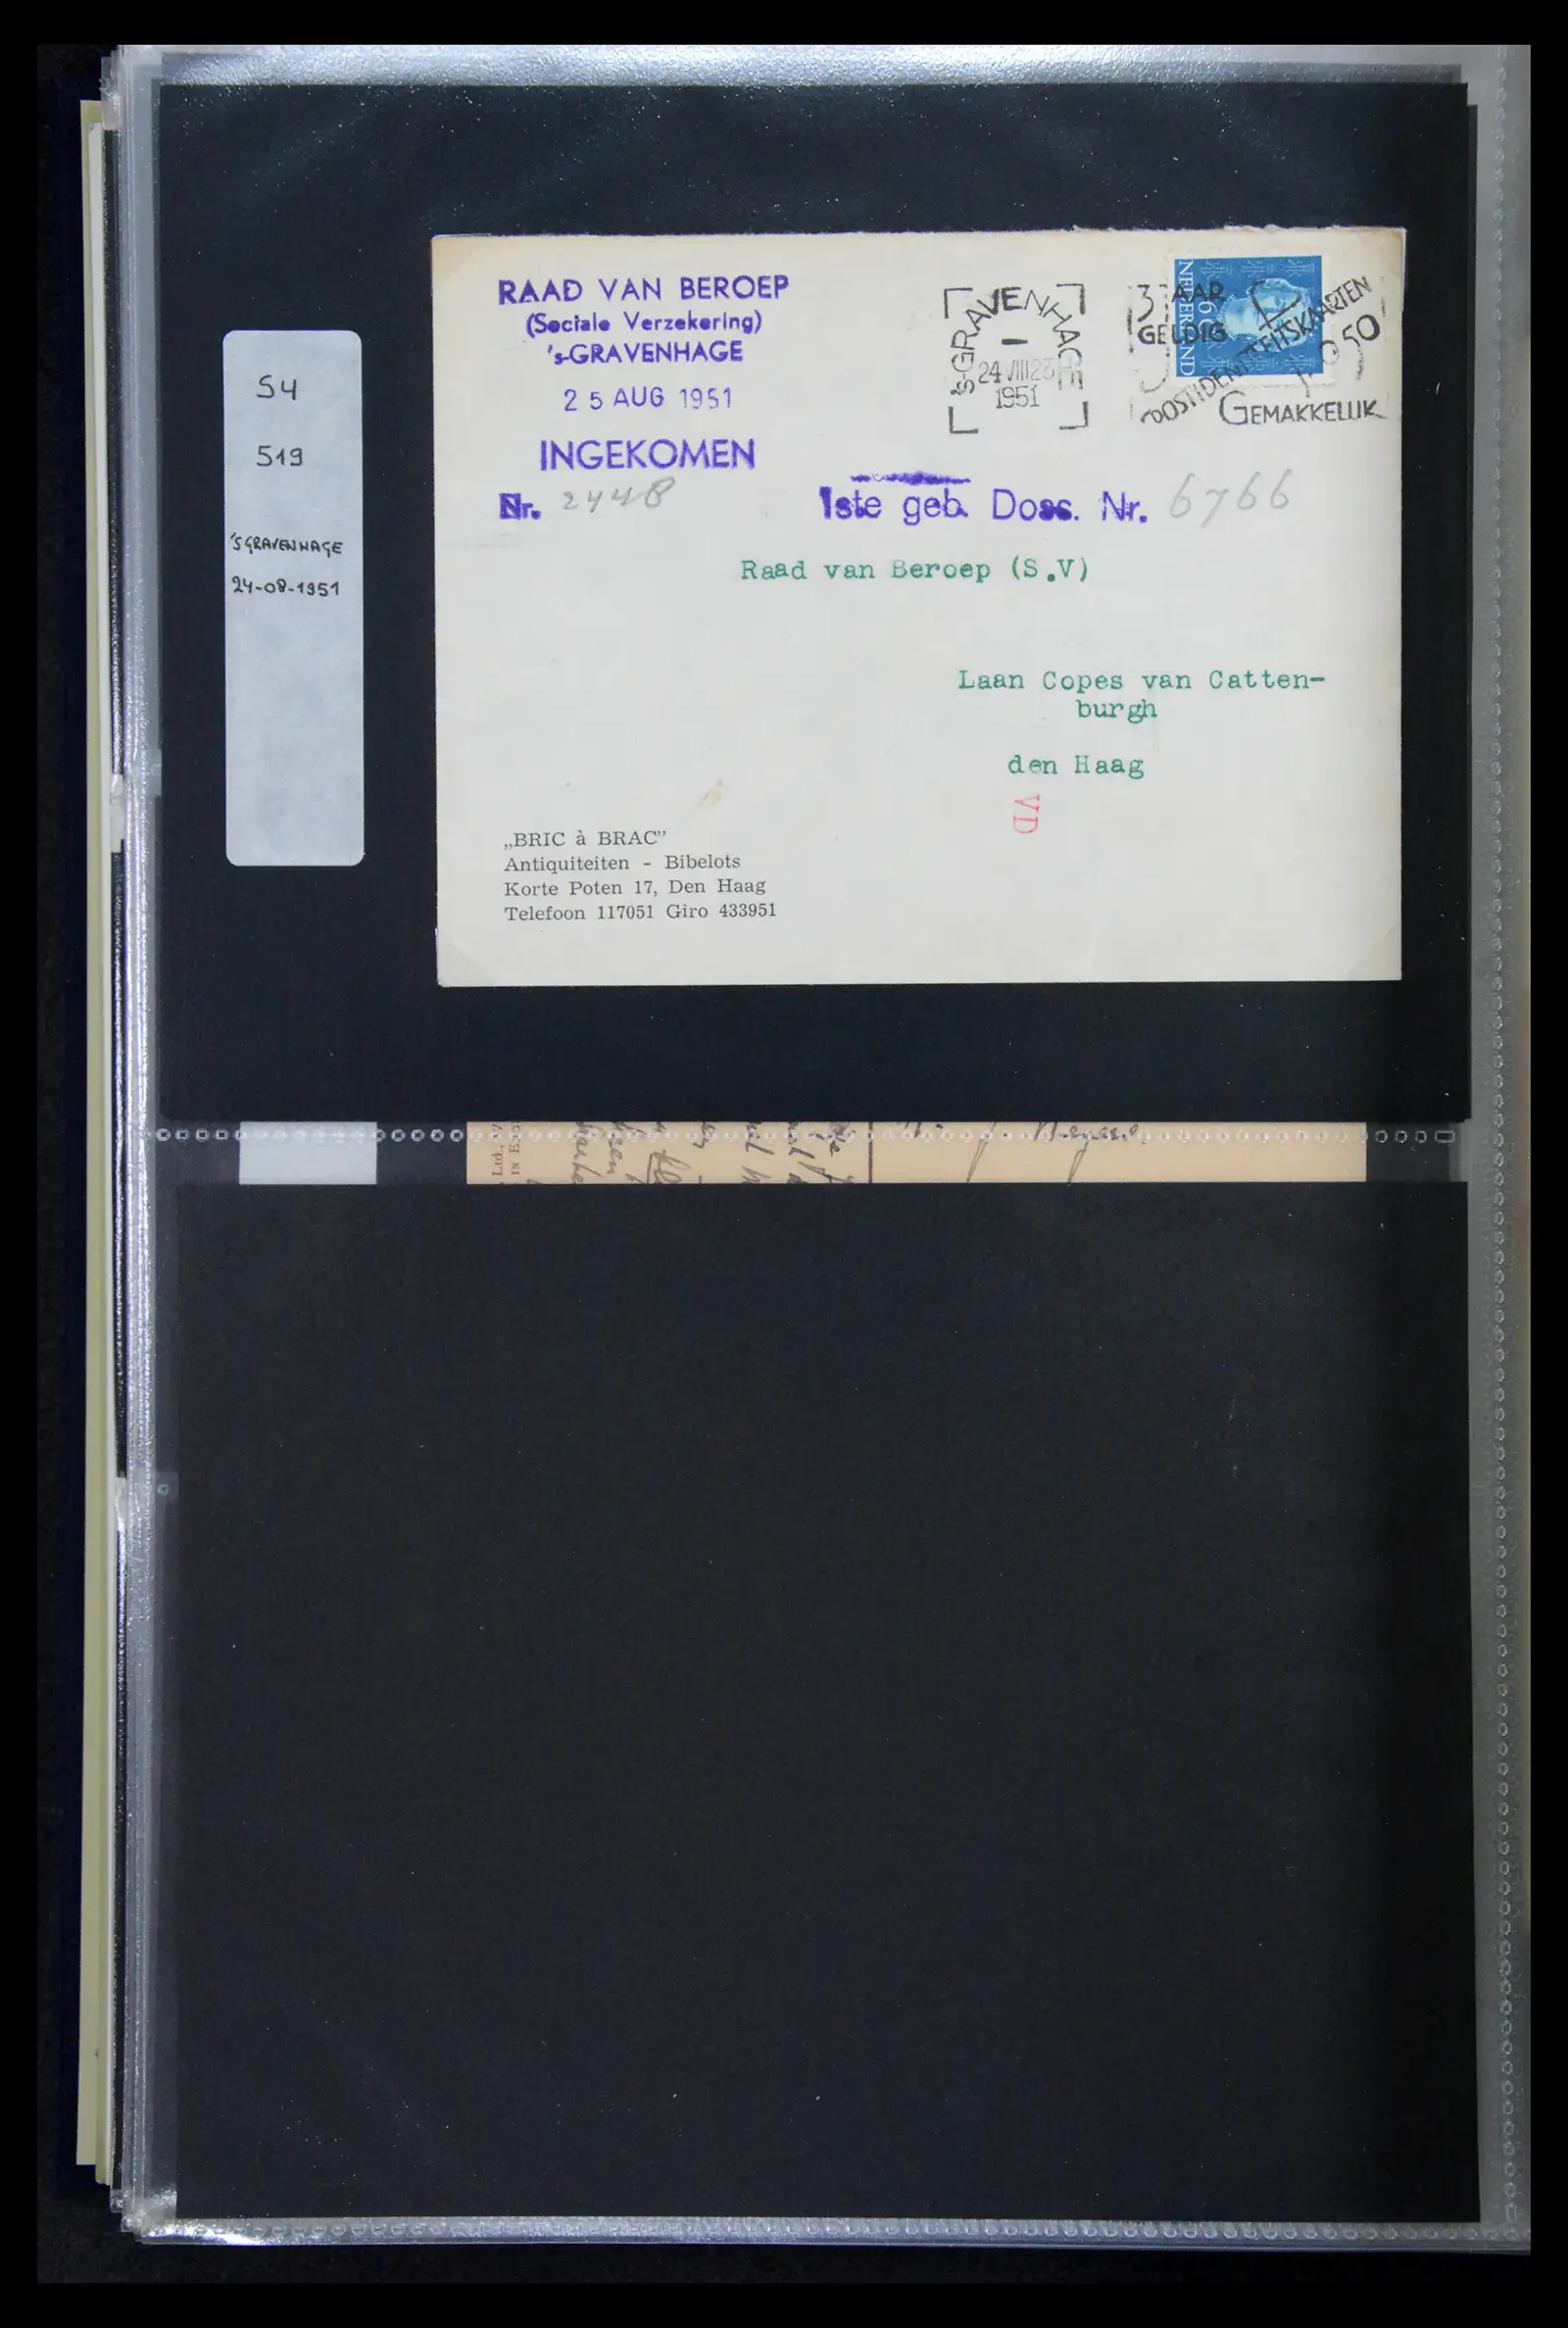 S4
519
'SGRAVENHAGE
24-08-1951
RAAD VAN BEROEP
(Sociale Verzekering)
's-GRAVENHAGE
25 AUG 1951
INGEKOMEN
Nr. 2448
1ste geb. Doss. Nr. 6766
's-GRAVENHAGE
24 VIII 23
1951
3 JAAR
GELDIG
POSTIDENTITEITSKAARTEN
50
GEMAKKELIJK
NEDERLAND
Raad van Beroep (S.V)
Laan Copes van Catten-
burgh
den Haag
VD
„BRIC à BRAC”
Antiquiteiten - Bibelots
Korte Poten 17, Den Haag
Telefoon 117051 Giro 433951
Ltd.